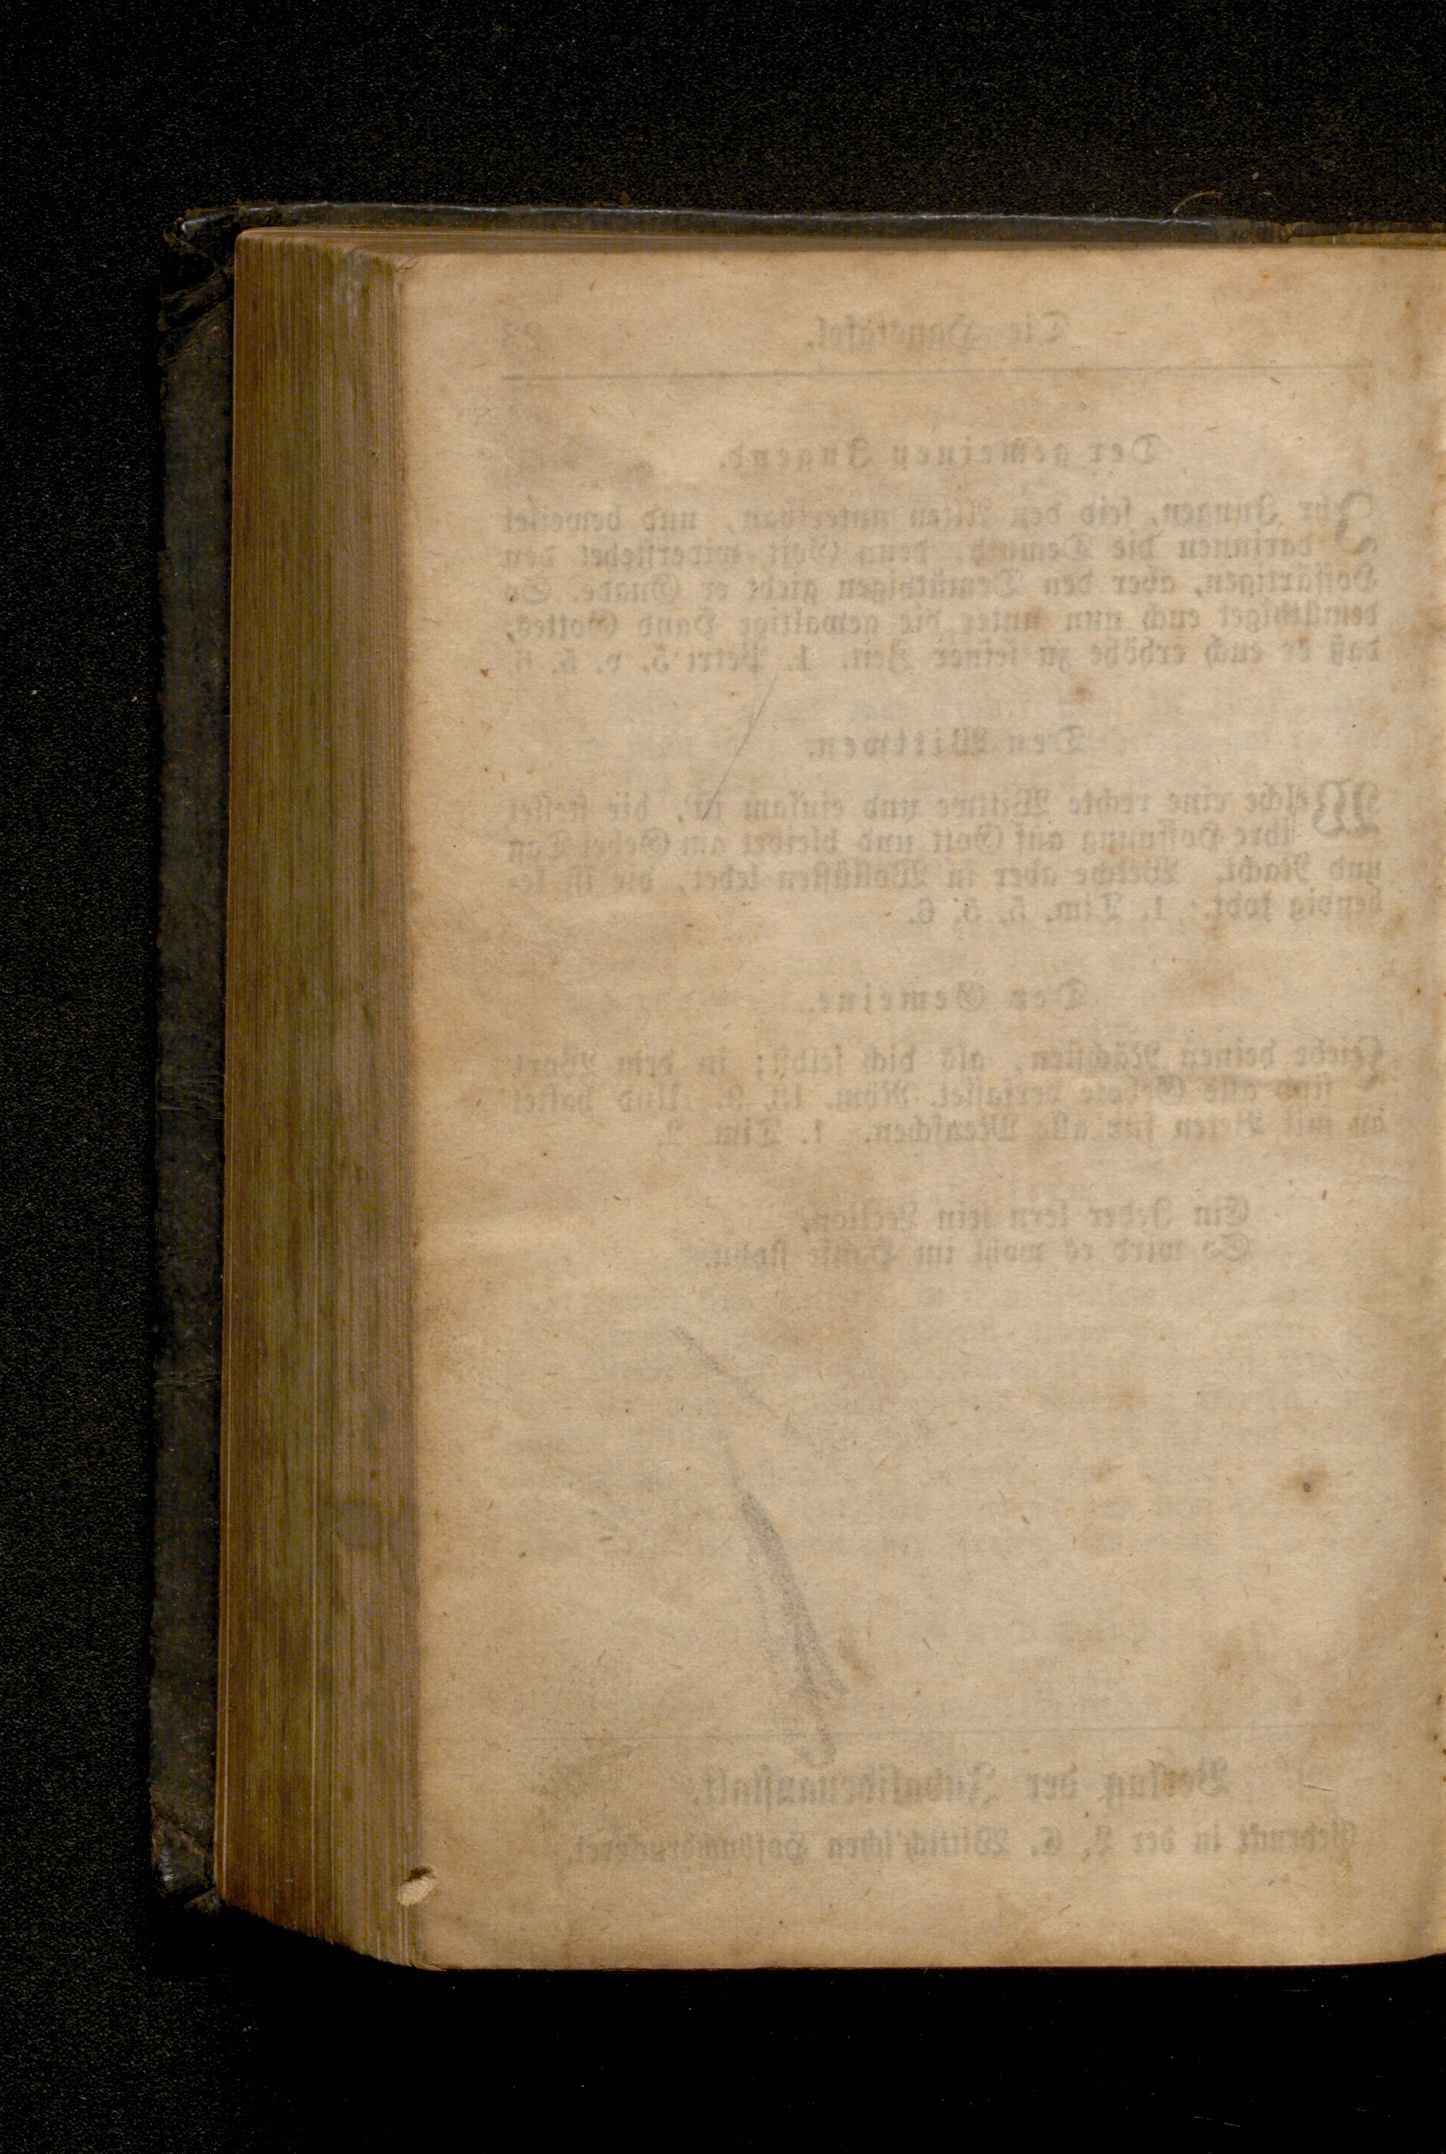 Die Haustafel. 23
Der gemeinen Jugend.
Ihr Jungen, seid den Alten unterthan, und beweiset
darinnen die Demuth, denn Gott widerstehet den
Hoffärtigen, aber den Demüthigen giebt er Gnade. So
demüthiget euch nun unter die gewaltige Hand Gottes,
daß er euch erhöhe zu seiner Zeit. 1. Petri 5, v. 5. 6.
Den Wittwen.
Welche eine rechte Wittwe und einsam ist, die stellet
ihre Hoffnung auf Gott und bleibet am Gebet Tag
und Nacht. Welche aber in Wollüsten lebet, die ist le-
bendig todt. 1. Tim. 5, 5. 6.
Der Gemeine.
Liebe deinen Nächsten, als dich selbst; in dem Wort
sind alle Gebote verfasset. Röm. 13, 9. Und haltet
an mit Beten für alle Menschen. 1. Tim. 2.
Ein Jeder lern sein Lection,
So wird es wohl im Hause stohn.
Verlag der Invalidenanstalt.
Gedruckt in der L. C. Wittich'schen Hofbuchdruckerei.